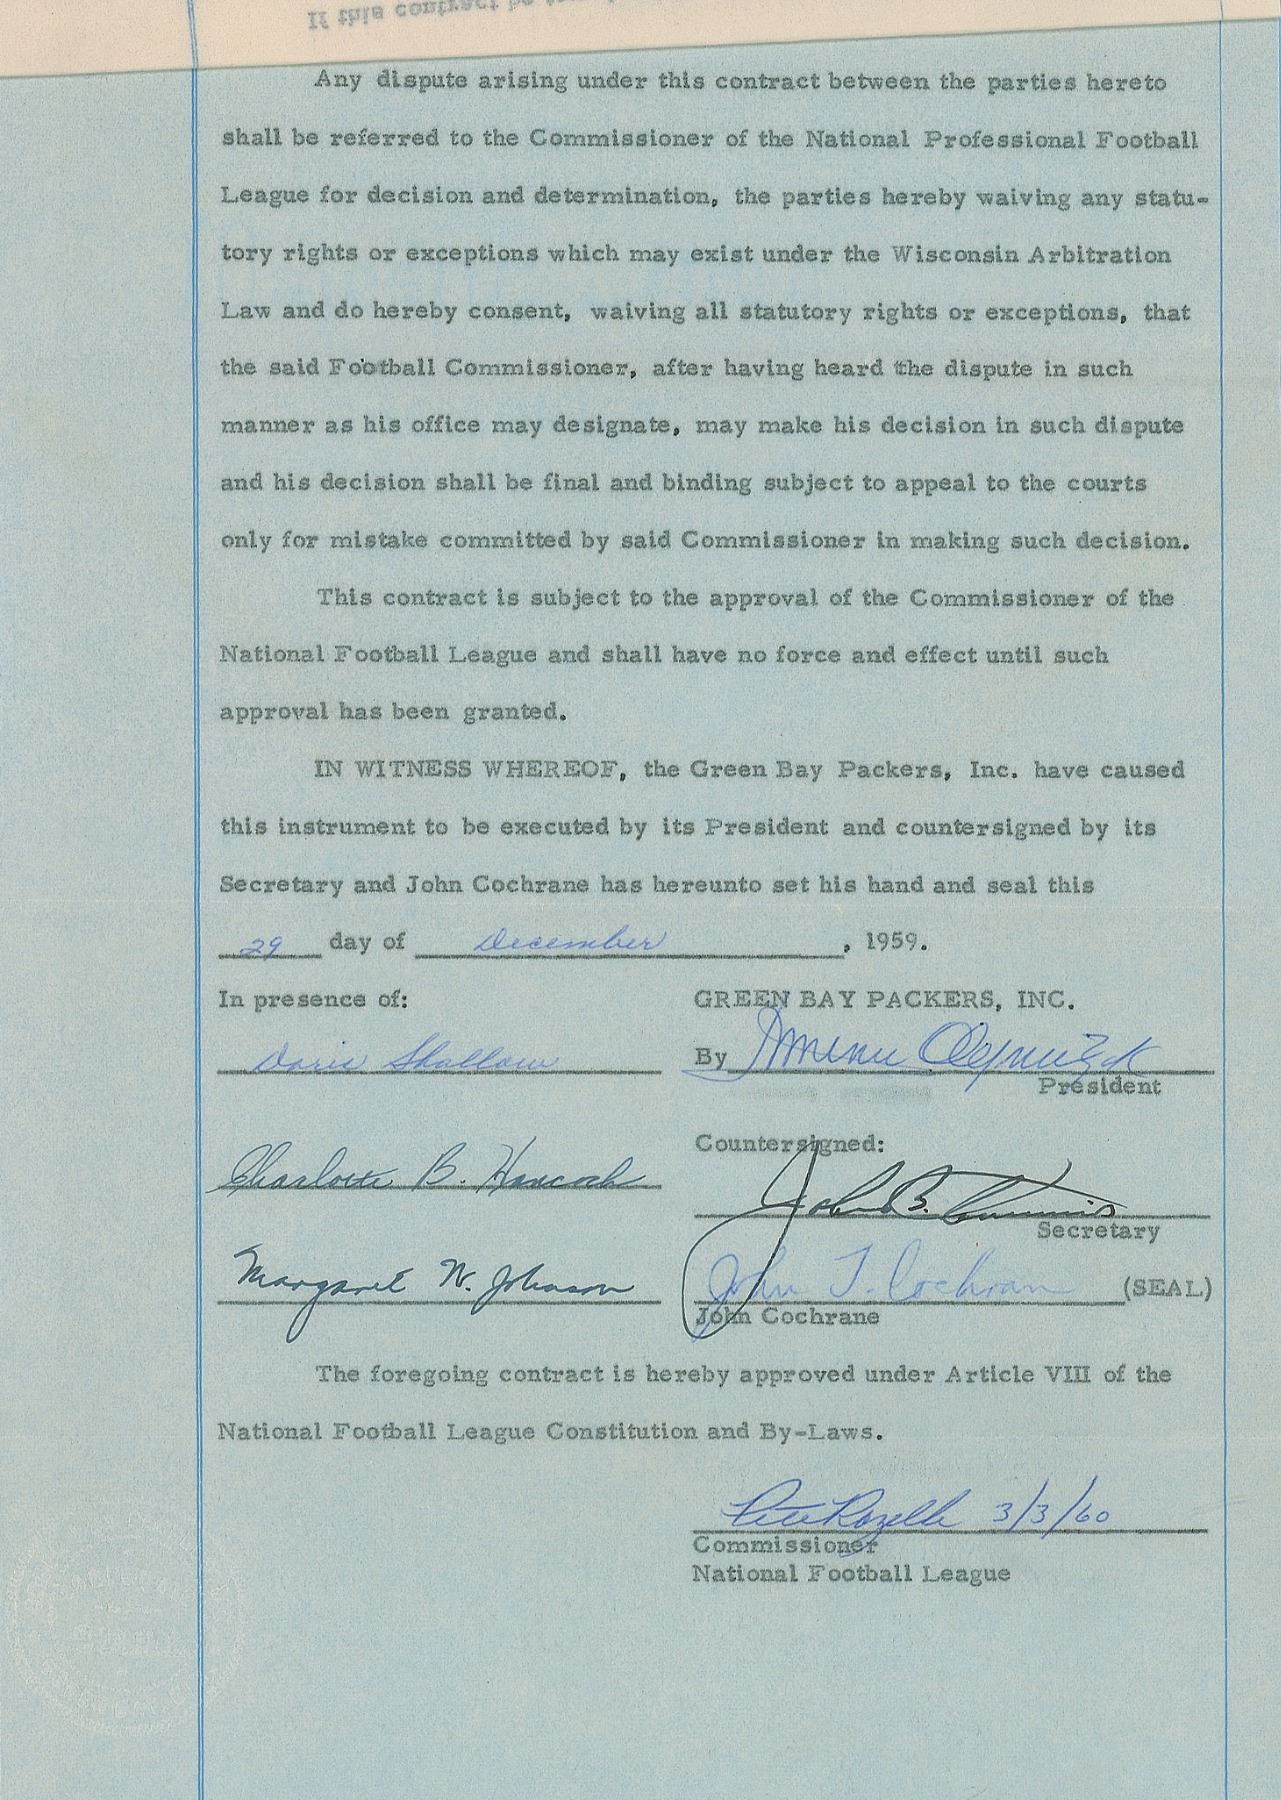 If this contract be
Any dispute arising under this contract between the parties hereto
shall be referred to the Commissioner of the National Professional Football
League for decision and determination, the parties hereby waiving any statu-
tory rights or exceptions which may exist under the Wisconsin Arbitration
Law and do hereby consent, waiving all statutory rights or exceptions, that
the said Football Commissioner, after having heard the dispute in such
manner as his office may designate, may make his decision in such dispute
and his decision shall be final and binding subject to appeal to the courts
only for mistake committed by said Commissioner in making such decision.
This contract is subject to the approval of the Commissioner of the
National Football League and shall have no force and effect until such
approval has been granted.
IN WITNESS WHEREOF, the Green Bay Packers, Inc. have caused
this instrument to be executed by its President and countersigned by its
Secretary and John Cochrane has hereunto set his hand and seal this
29 day of December, 1959.
In presence of: GREEN BAY PACKERS, INC.
Doris Shallow By
President
Countersigned:
Charlotte B. Hancock John B.
Secretary
Margaret W. Johnson John T. Cochran (SEAL)
John Cochrane
The foregoing contract is hereby approved under Article VIII of the
National Football League Constitution and By-Laws.
Pete Rozelle 3/3/60
Commissioner
National Football League